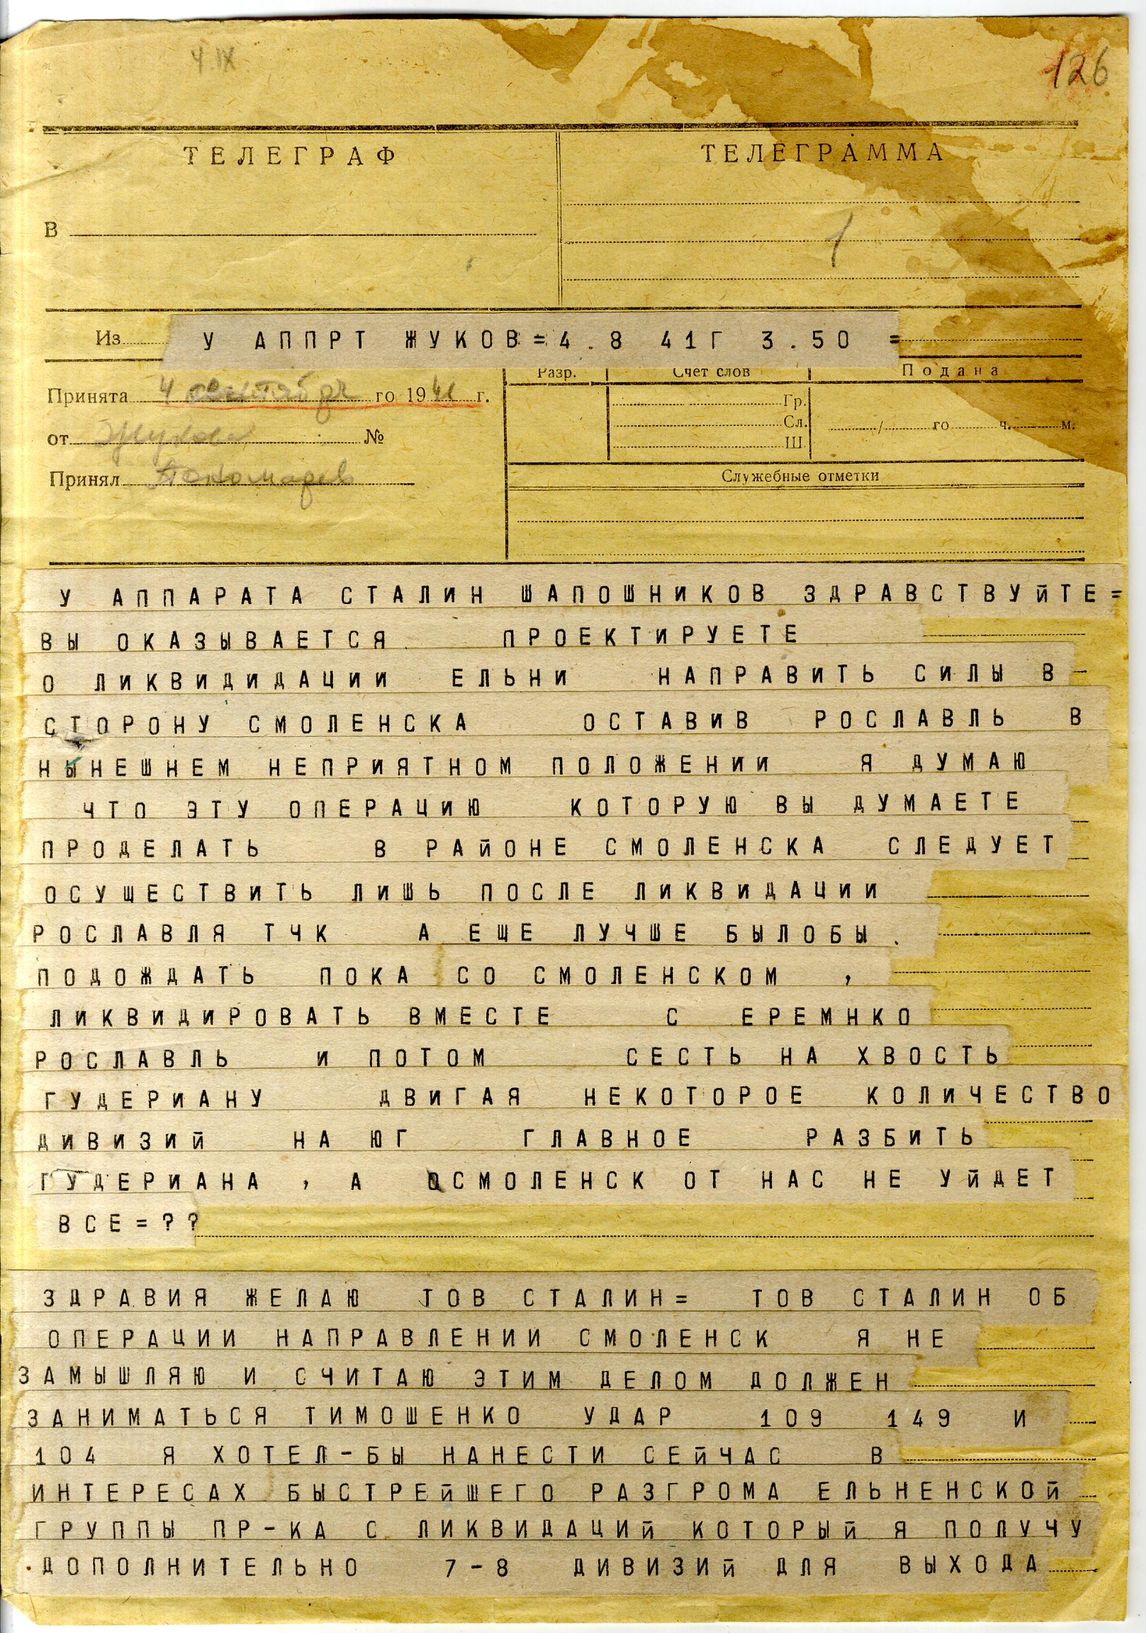 Ч.IX
126
ТЕЛЕГРАФ
ТЕЛЕГРАММА
В
1
Из У АППРТ ЖУКОВ=4.8 41Г 3.50 =
Принята 4 сентября го 1941 г.
Разр. Счет слов Подана
Гр.
от Жукова №
Сл. / го ч. м.
Ш.
Принял Пономарев
Служебные отметки
У АППАРАТА СТАЛИН ШАПОШНИКОВ ЗДРАВСТВУйТЕ=
ВЫ ОКАЗЫВАЕТСЯ ПРОЕКТИРУЕТЕ
О ЛИКВИДИДАЦИИ ЕЛЬНИ НАПРАВИТЬ СИЛЫ В
СТОРОНУ СМОЛЕНСКА ОСТАВИВ РОСЛАВЛЬ В
НЫНЕШНЕМ НЕПРИЯТНОМ ПОЛОЖЕНИИ Я ДУМАЮ
ЧТО ЭТУ ОПЕРАЦИЮ КОТОРУЮ ВЫ ДУМАЕТЕ
ПРОДЕЛАТЬ В РАйОНЕ СМОЛЕНСКА СЛЕДУЕТ
ОСУЩЕСТВИТЬ ЛИШЬ ПОСЛЕ ЛИКВИДАЦИИ
РОСЛАВЛЯ ТЧК А ЕЩЕ ЛУЧШЕ БЫЛОБЫ .
ПОДОЖДАТЬ ПОКА СО СМОЛЕНСКОМ ,
ЛИКВИДИРОВАТЬ ВМЕСТЕ С ЕРЕМНКО
РОСЛАВЛЬ И ПОТОМ СЕСТЬ НА ХВОСТЬ
ГУДЕРИАНУ ДВИГАЯ НЕКОТОРОЕ КОЛИЧЕСТВО
ДИВИЗИй НА ЮГ ГЛАВНОЕ РАЗБИТЬ
ГУДЕРИАНА , А СМОЛЕНСК ОТ НАС НЕ УйДЕТ
ВСЕ=??
ЗДРАВИЯ ЖЕЛАЮ ТОВ СТАЛИН= ТОВ СТАЛИН ОБ
ОПЕРАЦИИ НАПРАВЛЕНИИ СМОЛЕНСК Я НЕ
ЗАМЫШЛЯЮ И СЧИТАЮ ЭТИМ ДЕЛОМ ДОЛЖЕН
ЗАНИМАТЬСЯ ТИМОШЕНКО УДАР 109 149 И
104 Я ХОТЕЛ-БЫ НАНЕСТИ СЕйЧАС В
ИНТЕРЕСАХ БЫСТРЕйШЕГО РАЗГРОМА ЕЛЬНЕНСКОй
ГРУППЫ ПР-КА С ЛИКВИДАЦИй КОТОРЫй Я ПОЛУЧУ
ДОПОЛНИТЕЛЬНО 7-8 ДИВИЗИй ДЛЯ ВЫХОДА